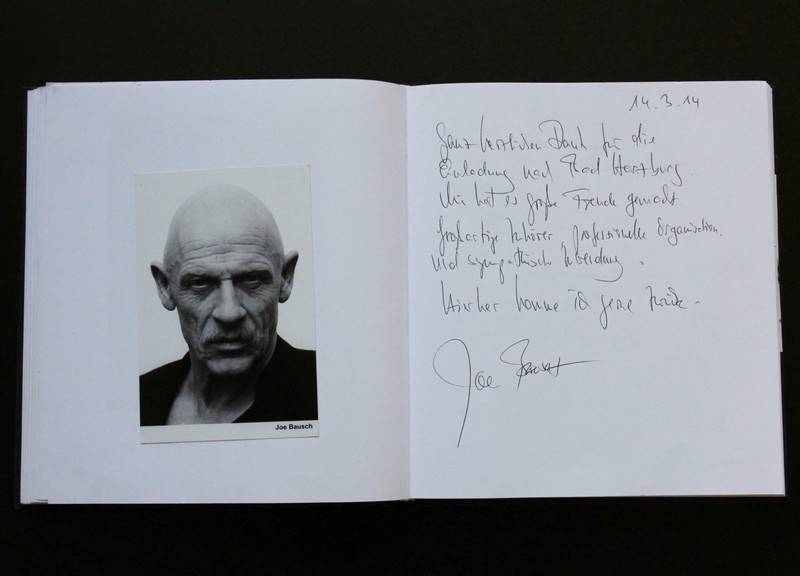 Joe Bausch
14.3.14
Ganz herzlichen Dank für die
Einladung nach Bad Harzburg
Mir hat es große Freude gemacht
großartige Zuhörer professionelle Organisation.
Und sympathische
Hierher komme ich gerne zurück.
Joe Bausch